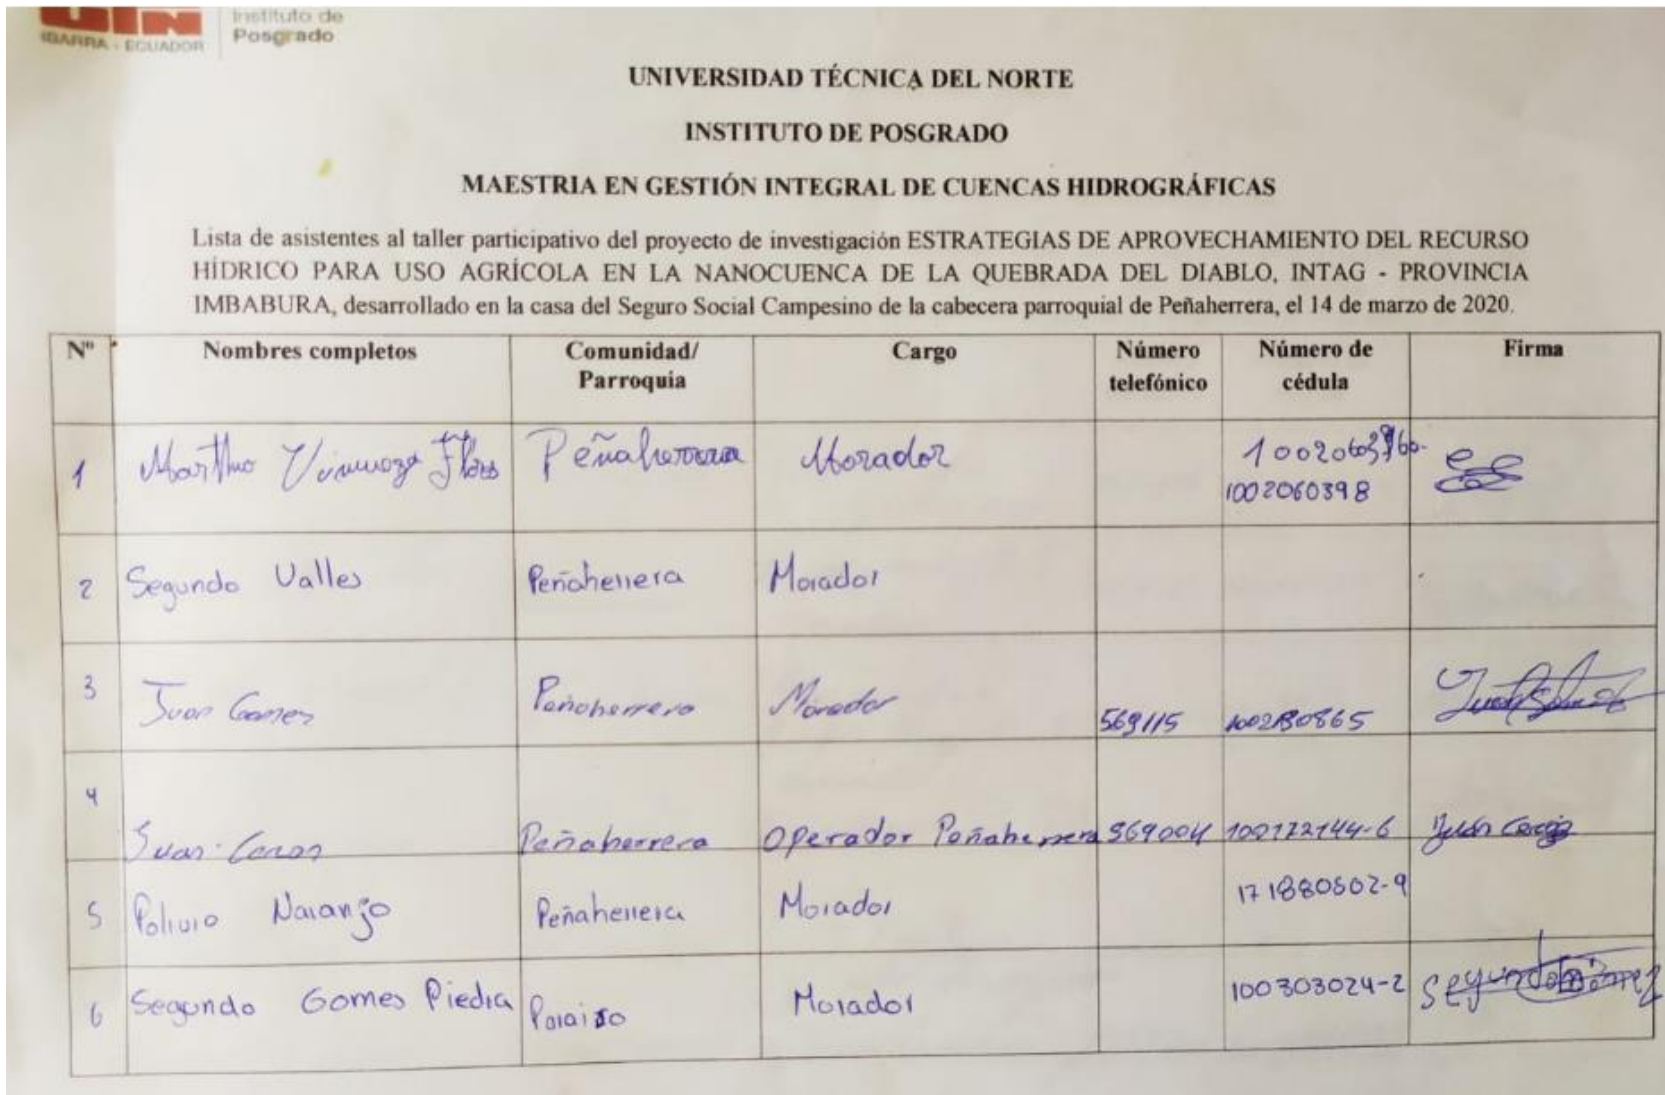 UTN
IBARRA - ECUADOR
Instituto de
Posgrado
UNIVERSIDAD TÉCNICA DEL NORTE
INSTITUTO DE POSGRADO
MAESTRIA EN GESTIÓN INTEGRAL DE CUENCAS HIDROGRÁFICAS
Lista de asistentes al taller participativo del proyecto de investigación ESTRATEGIAS DE APROVECHAMIENTO DEL RECURSO
HÍDRICO PARA USO AGRÍCOLA EN LA NANOCUENCA DE LA QUEBRADA DEL DIABLO, INTAG - PROVINCIA
IMBABURA, desarrollado en la casa del Seguro Social Campesino de la cabecera parroquial de Peñaherrera, el 14 de marzo de 2020.
Nº Nombres completos Comunidad/ Parroquia Cargo Número telefónico Número de cédula Firma
1 Flores Peñaherrera Morador
1002060398
2 Segundo Valles Peñaherrera Morador
3 Juan Gomez Peñaherrera Morador 569115
4 Juan Peñaherrera Operador Peñaherrera 569004 100172144-6 Juan
5 Polivio Naranjo Peñaherrera Morador 171880502-9
6 Segundo Gomes Piedra Paraiso Morador 100303024-2